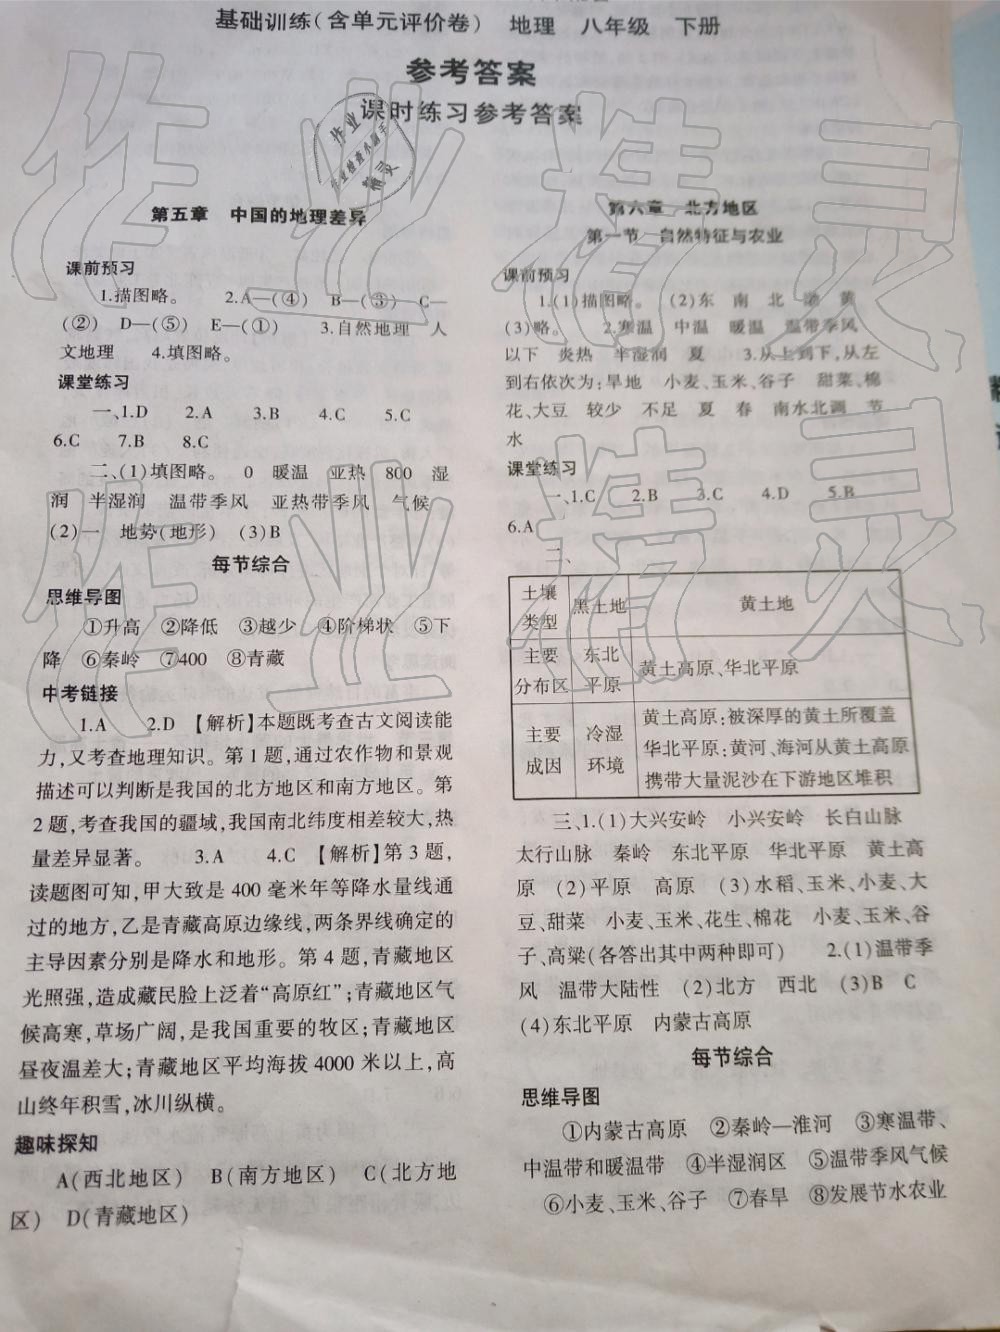 基础训练(含单元评价卷)　地理　八年级　下册
参考答案
课时练习参考答案
第五章　中国的地理差异
课前预习
1.描图略。　2.A—(④)　B—(③)　C—
(②)　D—(⑤)　E—(①)　3.自然地理　人
文地理　4.填图略。
课堂练习
一、1.D　2.A　3.B　4.C　5.C
6.C　7.B　8.C
二、(1)填图略。　0　暖温　亚热　800　湿
润　半湿润　温带季风　亚热带季风　气候
(2)一　地势(地形)　(3)B
每节综合
思维导图
①升高　②降低　③越少　④阶梯状　⑤下
降　⑥秦岭　⑦400　⑧青藏
中考链接
1.A　2.D　【解析】本题既考查古文阅读能
力,又考查地理知识。第1题,通过农作物和景观
描述可以判断是我国的北方地区和南方地区。第
2题,考查我国的疆域,我国南北纬度相差较大,热
量差异显著。　3.A　4.C　【解析】第3题,
读题图可知,甲大致是400毫米年等降水量线通
过的地方,乙是青藏高原边缘线,两条界线确定的
主导因素分别是降水和地形。第4题,青藏地区
光照强,造成藏民脸上泛着“高原红”;青藏地区气
候高寒,草场广阔,是我国重要的牧区;青藏地区
昼夜温差大;青藏地区平均海拔4000米以上,高
山终年积雪,冰川纵横。
趣味探知
A(西北地区)　B(南方地区)　C(北方地
区)　D(青藏地区)
第六章　北方地区
第一节　自然特征与农业
课前预习
1.(1)描图略。　(2)东　南　北　渤　黄
(3)略。　2.寒温　中温　暖温　温带季风
以下　炎热　半湿润　夏　3.从上到下,从左
到右依次为:旱地　小麦、玉米、谷子　甜菜、棉
花、大豆　较少　不足　夏　春　南水北调　节
水
课堂练习
一、1.C　2.B　3.C　4.D　5.B
6.A
二、
土壤类型　黑土地　黄土地
主要分布区　东北平原　黄土高原、华北平原
主要成因　冷湿环境　黄土高原:被深厚的黄土所覆盖
华北平原:黄河、海河从黄土高原
携带大量泥沙在下游地区堆积
三、1.(1)大兴安岭　小兴安岭　长白山脉
太行山脉　秦岭　东北平原　华北平原　黄土高
原　(2)平原　高原　(3)水稻、玉米、小麦、大
豆、甜菜　小麦、玉米、花生、棉花　小麦、玉米、谷
子、高粱(各答出其中两种即可)　2.(1)温带季
风　温带大陆性　(2)北方　西北　(3)B　C
(4)东北平原　内蒙古高原
每节综合
思维导图
①内蒙古高原　②秦岭—淮河　③寒温带、
中温带和暖温带　④半湿润区　⑤温带季风气候
⑥小麦、玉米、谷子　⑦春旱　⑧发展节水农业
作业精灵
作业精灵